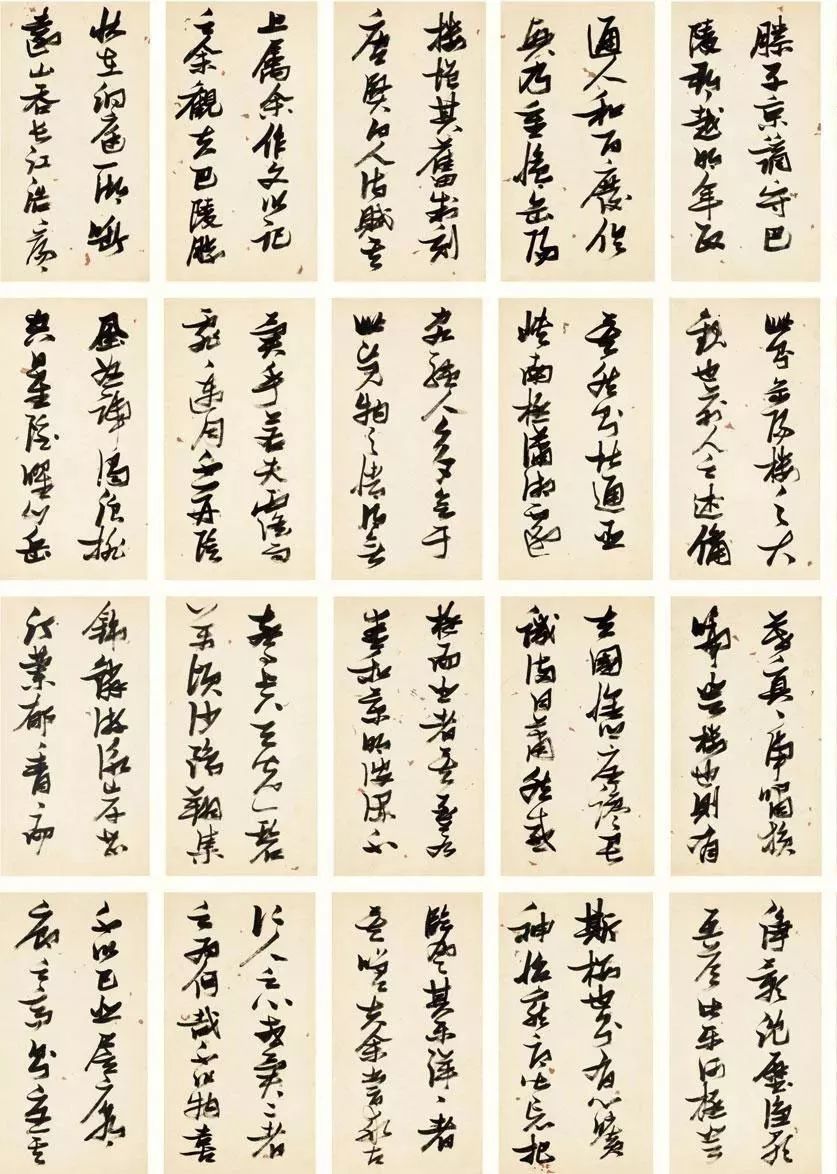 滕子京謫守巴
陵郡越明年政
通人和百廢俱
興乃重修岳陽
樓增其舊制刻
唐賢今人詩賦其
上屬余作文以記
之余觀夫巴陵勝
狀在洞庭一湖銜
遠山吞長江浩々湯々
此則岳陽樓之大
觀也前人之述備
矣然則北通巫
峽南極瀟湘遷
客騷人多會于
此覽物之情得無
異乎若夫霪雨
霏々連月不開陰
風怒號濁浪排
空日星隱曜山岳
暮冥々虎嘯猿
啼登樓也則有
去國懷鄉憂讒畏
譏滿目蕭然感
極而悲者矣至若
春和景明波瀾不
驚上下天光一碧
萬頃沙鷗翔集
錦鱗游泳岸芷
汀蘭郁々青々而
靜影沉璧漁歌
互答此樂何極登
斯樓也則有心曠
神怡寵辱皆忘把
臨風其樂洋々者
矣嗟夫余嘗求古
仁人之心或異二者
之為何哉不以物喜
不以己悲居廟
之高則憂其